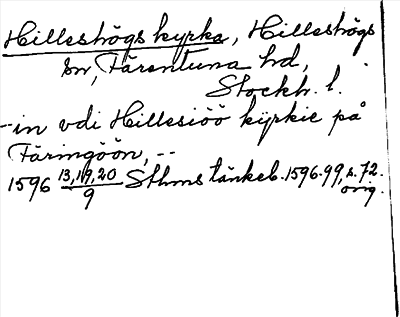 Hilleshögs kyrka, Hilleshögs
sn, Färentuna hd,
Stockh. l.
--in vdi Hillesiöö kyrkie på
Färingöön, --
1596 13,19,20/9 Sthms tänkeb. 1596-99, s. 72.
orig.